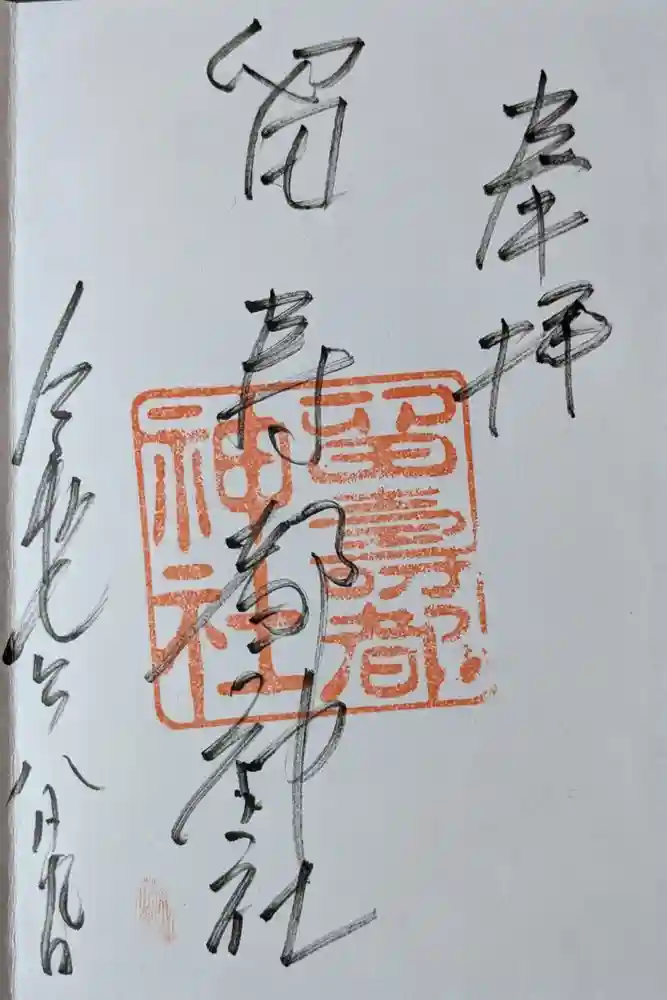 奉拝
留寿都神社
留壽都
神社
令和 八月九日